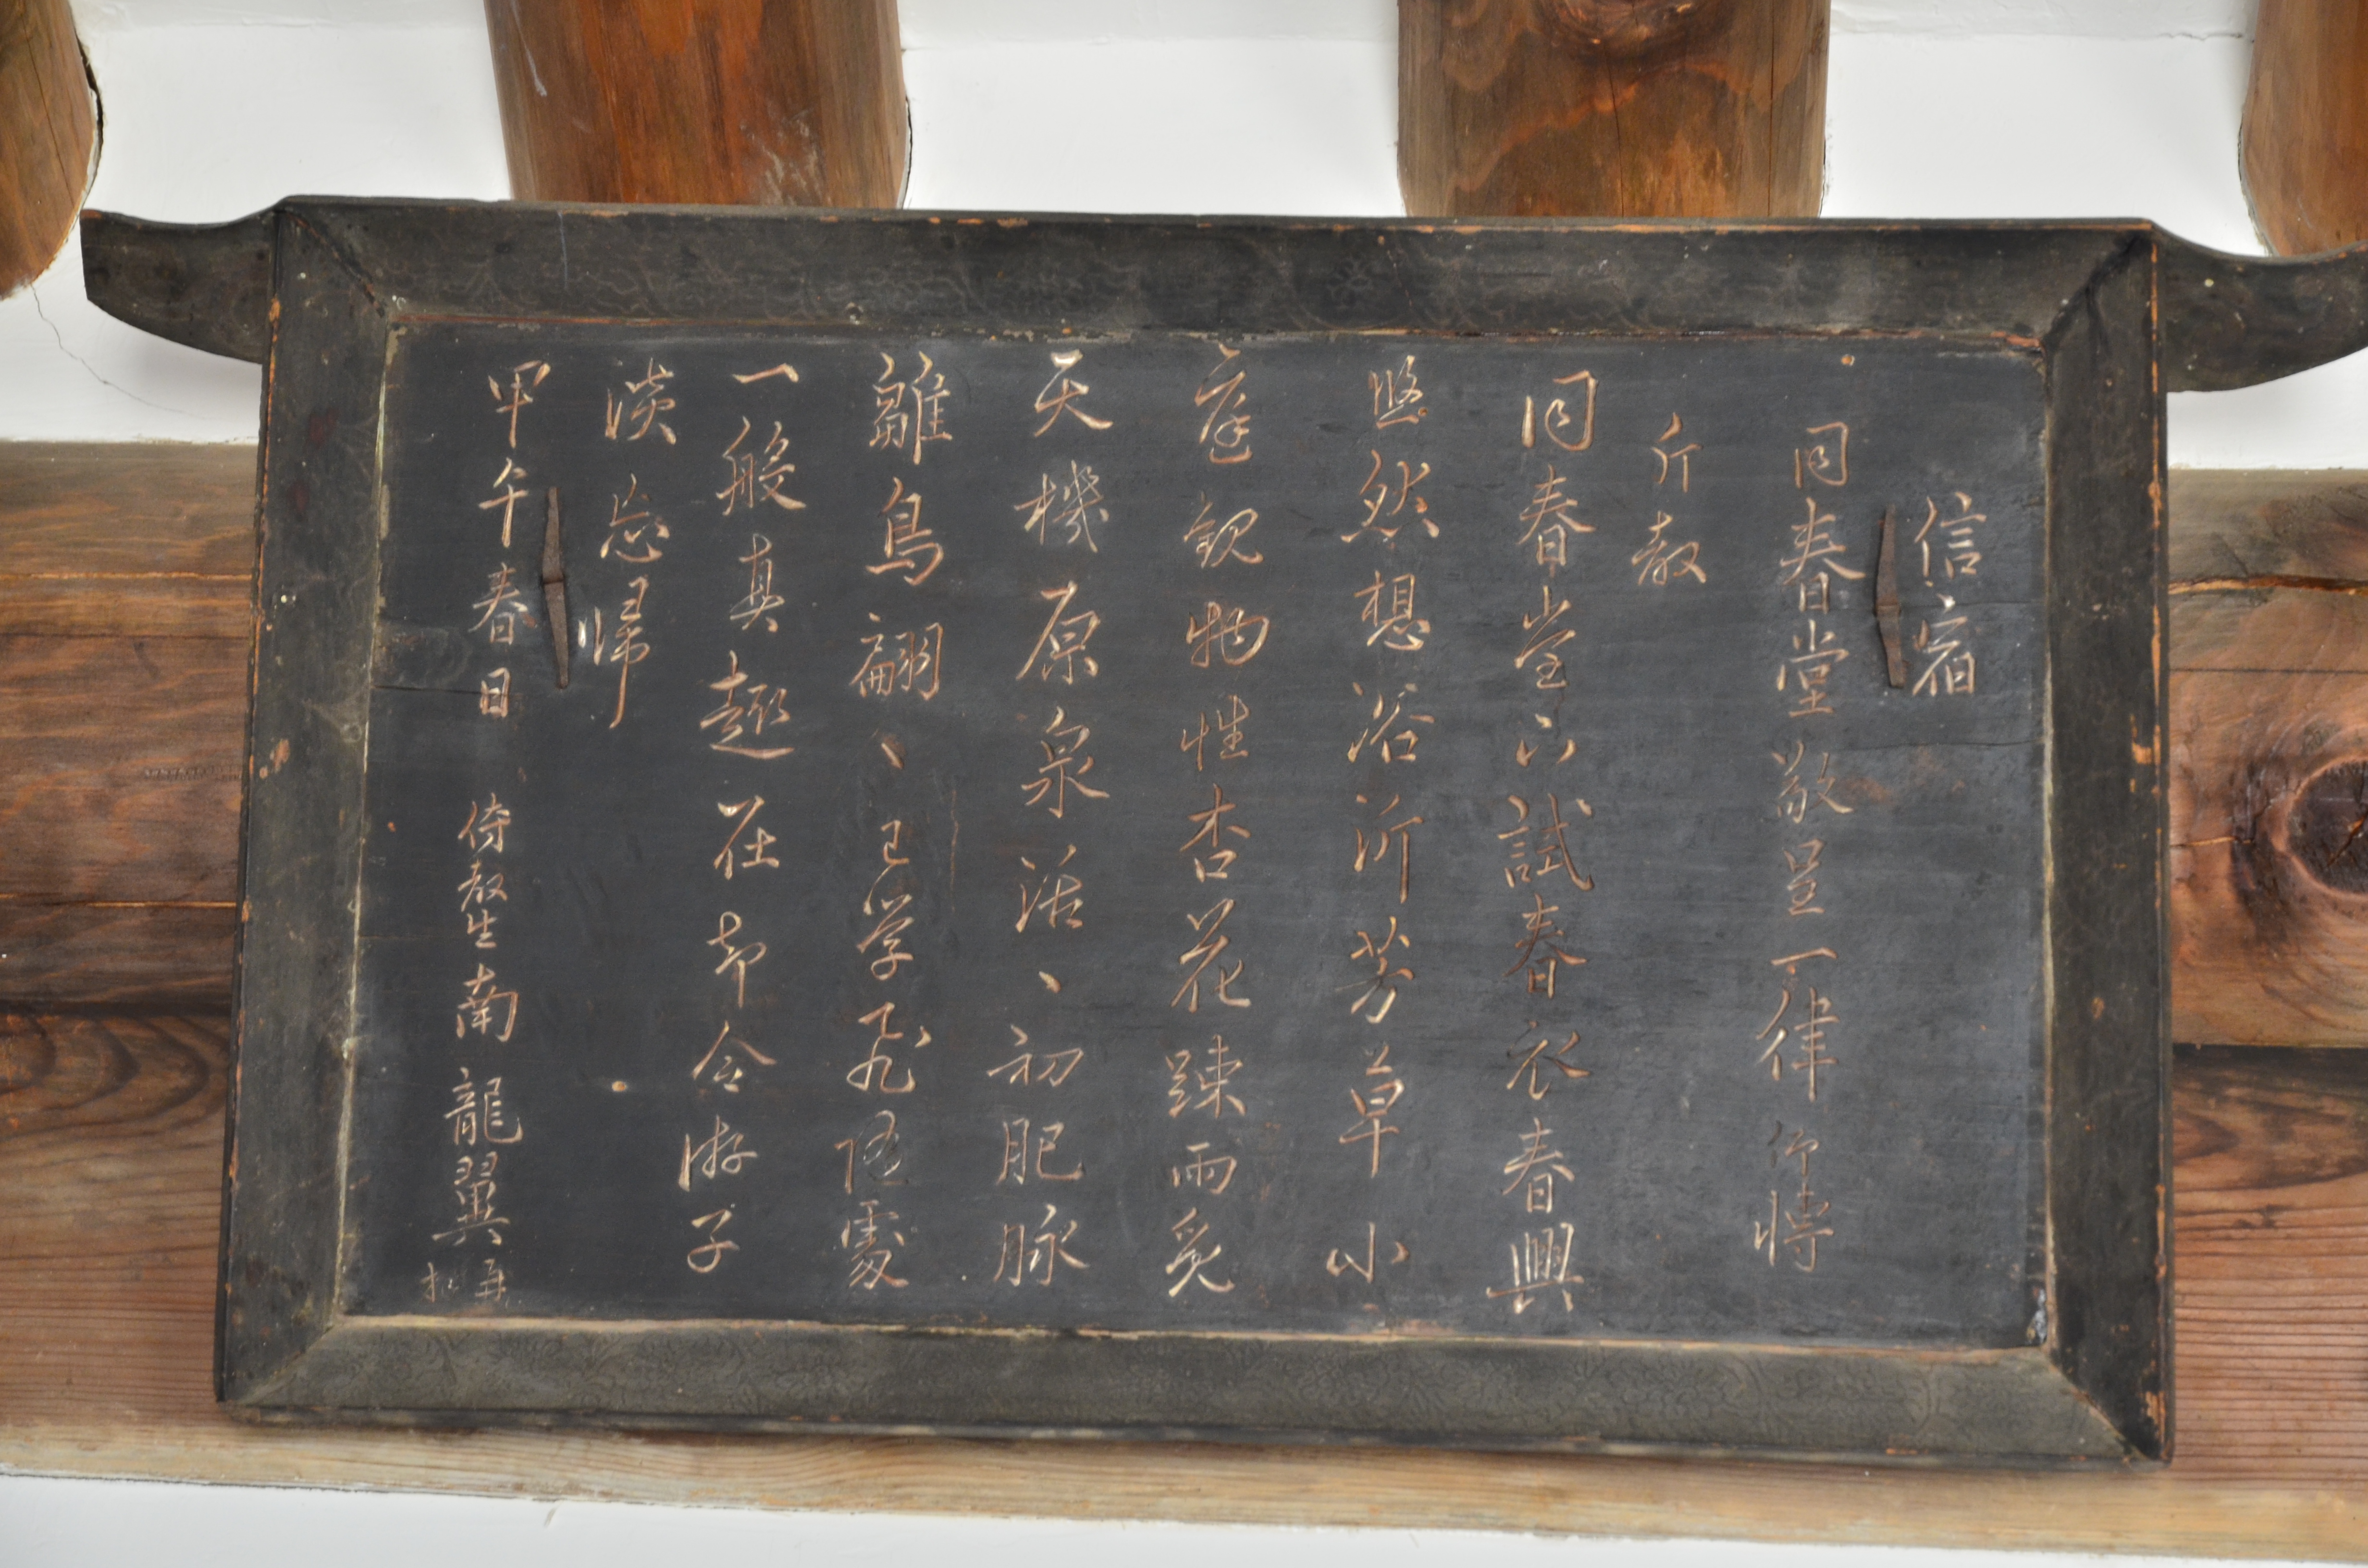 信宿
同春堂敬呈一律仰博
斤教
同春堂下試春衣春興
悠然想浴沂芳草小
庭観物性杏花踈雨炙
天機原泉活〻初肥脉
雛鳥翩〻已学飛隨處
一般真趣在却令游子
淡忘歸
甲午春日 侍教生南龍翼 拜